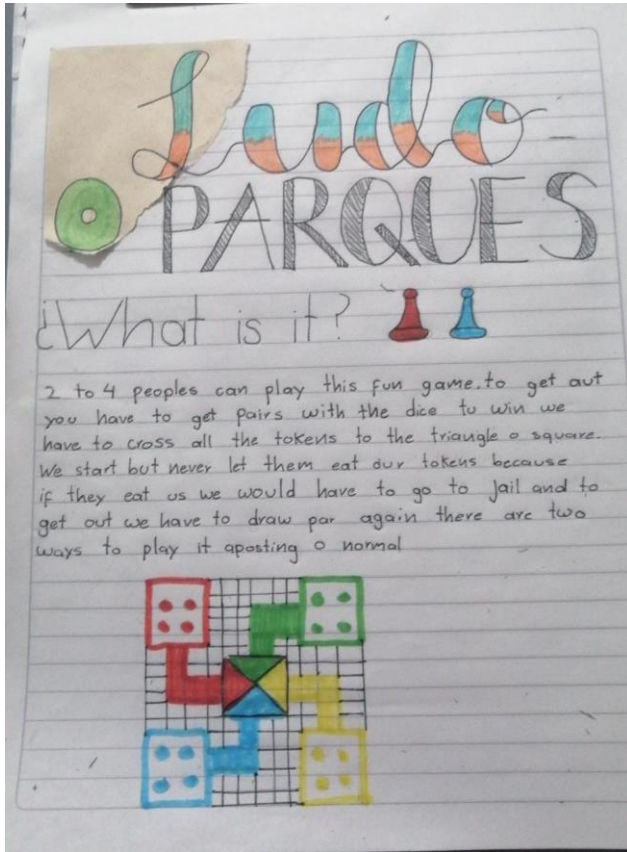 Ludo
O PARQUES
¿What is it?
2 to 4 peoples can play this fun game.to get aut
you have to get pairs with the dice to win we
have to cross all the tokens to the triangle o square.
We start but never let them eat our tokens because
if they eat us we would have to go to jail and to
get out we have to draw par again there are two
ways to play it aposting o normal